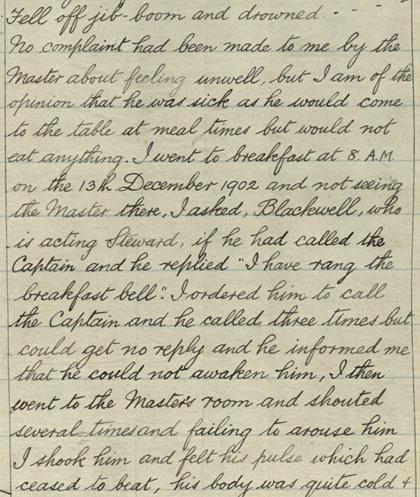 Fell off jib-boom and drowned. - - -
No complaint had been made to me by the
Master about feeling unwell, but I am of the
opinion that he was sick as he would come
to the table at meal times but would not
eat anything. I went to breakfast at 8. A.M.
on the 13th December 1902 and not seeing
the Master there, I asked, Blackwell, who
is acting Steward, if he had called the
Captain and he replied "I have rang the
breakfast bell". I ordered him to call
the Captain and he called three times but
could get no reply and he informed me
that he could not awaken him, I then
went to the Masters room and shouted
several times and failing to arouse him
I shook him and felt his pulse which had
ceased to beat, his body was quite cold +